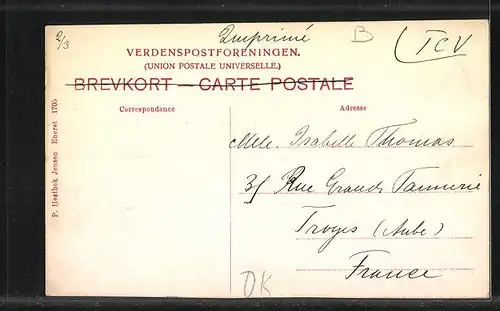 2/3
Imprimé
B
(TCV
VERDENSPOSTFORENINGEN.
(UNION POSTALE UNIVERSELLE.)
BREVKORT — CARTE POSTALE
Correspondance
Adresse
P. Hestbek Jensen Eneret 1705
Melle. Isabelle Thomas
35 Rue Grande Tannerie
Troyes (Aube)
France
DK